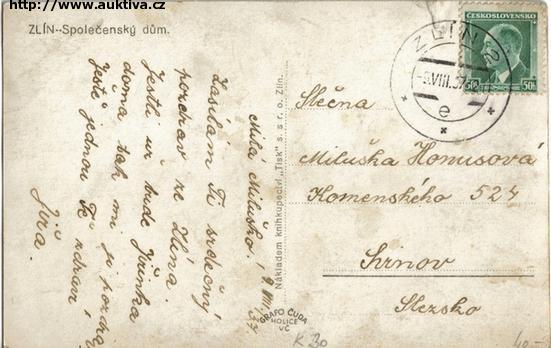 http://www.auktiva.cz
ZLÍN--Společenský dům.
9. VIII. 37.
Milá Miluško!
Zasílám Ti srdečný
pozdrav ze Zlína.
Jestli už bude Jiřinka
doma tak mi ji pozdrav
Ještě jednou Tě zdraví
Jiřa.
Nákladem knihkupectví „Tisk" s. s r. o. Zlín.
GRAFO ČUDA
HOLICE
VČ
ČESKOSLOVENSKO
50 50h
ZLÍN 2
-9.VIII.37
e
Slečna
Miluška Honusová
Komenského 524
Krnov
Slezsko
K 30
40-